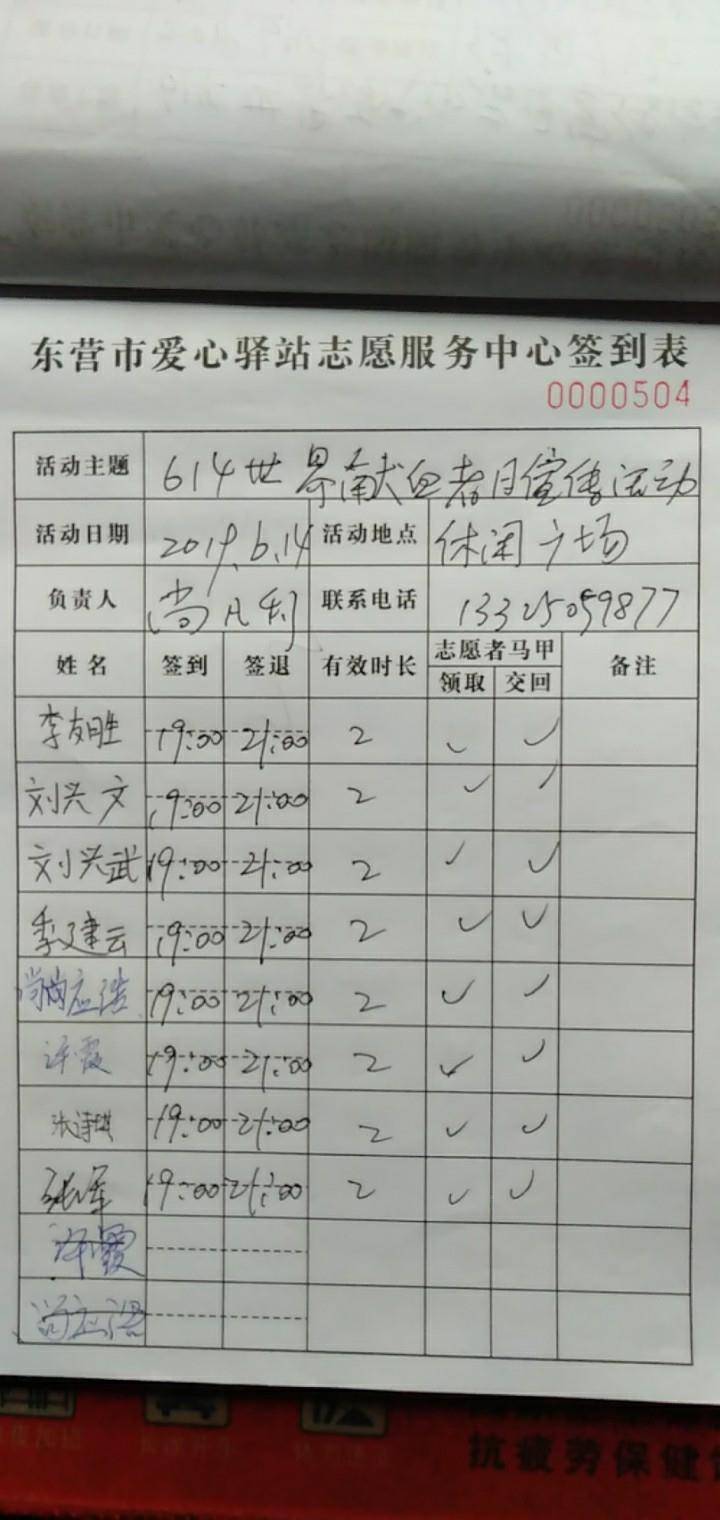 东营市爱心驿站志愿服务中心签到表
0000504
活动主题 614世界献血者日宣传活动
活动日期 2019.6.14 活动地点 休闲广场
负责人 尚凡利 联系电话 13325059877
姓名 签到 签退 有效时长 志愿者马甲 备注
领取 交回
李友胜 19:00 21:00 2 ✓ ✓
刘兴文 19:00 21:00 2 ✓ ✓
刘兴武 19:00 21:00 2 ✓ ✓
季建云 19:00 21:00 2 ✓ ✓
尚应浩 19:00 21:00 2 ✓ ✓
许霞 19:00 21:00 2 ✓ ✓
张诗琪 19:00 21:00 2 ✓ ✓
张军 19:00 21:00 2 ✓ ✓
许霞
抗疲劳保健